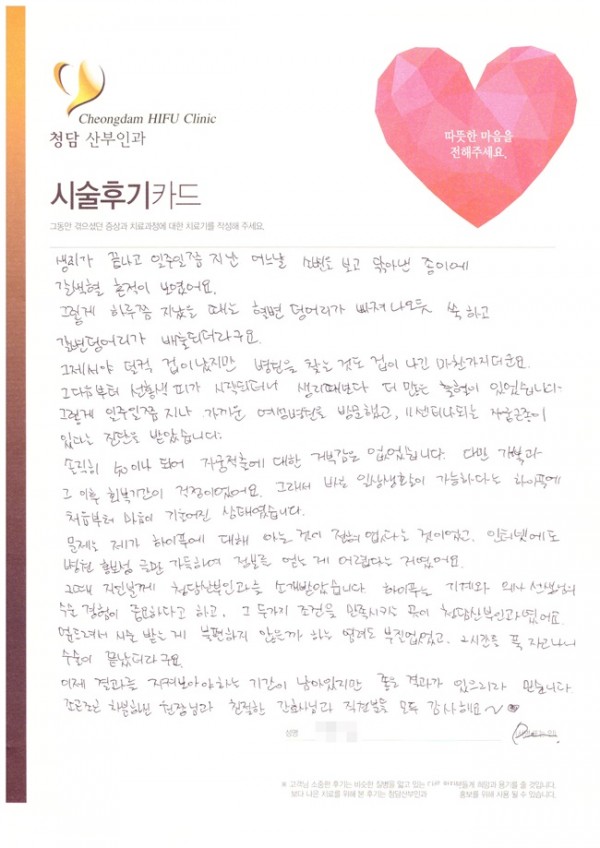 Cheongdam HIFU Clinic
청담 산부인과
따뜻한 마음을
전해주세요.
시술후기카드
그동안 겪으셨던 증상과 치료과정에 대한 치료기를 작성해 주세요.
생리가 끝나고 일주일쯤 지난 어느날 소변을 보고 닦아낸 종이에
갈색혈 흔적이 보였어요.
그렇게 하루쯤 지났을 때는 혈변 덩어리가 빠져 나오듯 쑥 하고
갈변덩어리가 배출되더라구요.
그제서야 덜컥 겁이났지만 병원을 찾는 것도 겁이 나긴 마찬가지더군요.
그다음부터 선홍색 피가 시작되더니 생리때보다 더 많은 출혈이 있었습니다.
그렇게 일주일쯤 지나 가까운 여성병원을 방문했고, 11센티나되는 자궁근종이
있다는 진단을 받았습니다.
솔직히 50이나 되어 자궁적출에 대한 거부감은 없었습니다. 다만 개복과
그 이후 회복기간이 걱정이었어요. 그래서 바로 일상생활이 가능하다는 하이푸에
처음부터 마음이 기울어진 상태였습니다.
문제는 제가 하이푸에 대해 아는 것이 전혀 없다는 것이었고, 인터넷에도
병원 홍보성 글만 가득하여 정보를 얻는 게 어렵다는 거였어요.
그때 지인분께 청담산부인과를 소개받았습니다. 하이푸는 기계와 의사 선생님의
수술 경험이 중요하다고 하고, 그 두가지 조건을 만족시키는 곳이 청담산부인과였어요.
엎드려서 시술 받는 게 불편하지 않을까 하는 염려도 부질없었고, 2시간쯤 푹 자고나니
수술이 끝났더라구요.
이제 결과를 지켜보아야하는 기간이 남아있지만 좋은 결과가 있으리라 믿습니다.
조곤조곤 하셨던 원장님과 친절한 간호사님과 직원분들 모두 감사해요~
성명
※ 고객님 소중한 후기는 비슷한 질병을 앓고 있는 다른 환자분들께 희망과 용기를 줄 것입니다.
보다 나은 치료를 위해 본 후기는 청담산부인과 홍보를 위해 사용 될 수 있습니다.